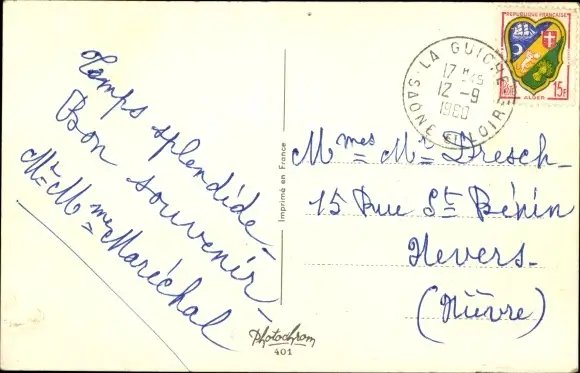 Temps splendide-
Bon souvenir-
Mr Mme Maréchal
Imprimé en France
Photochrom
401
LA GUICHE
17 H45
12 -9
1960
SAONE ET LOIRE
REPUBLIQUE FRANÇAISE
ALGER
15F
Mmes Mr Dresch-
15 Rue St Bénin
Nevers-
(Nièvre)